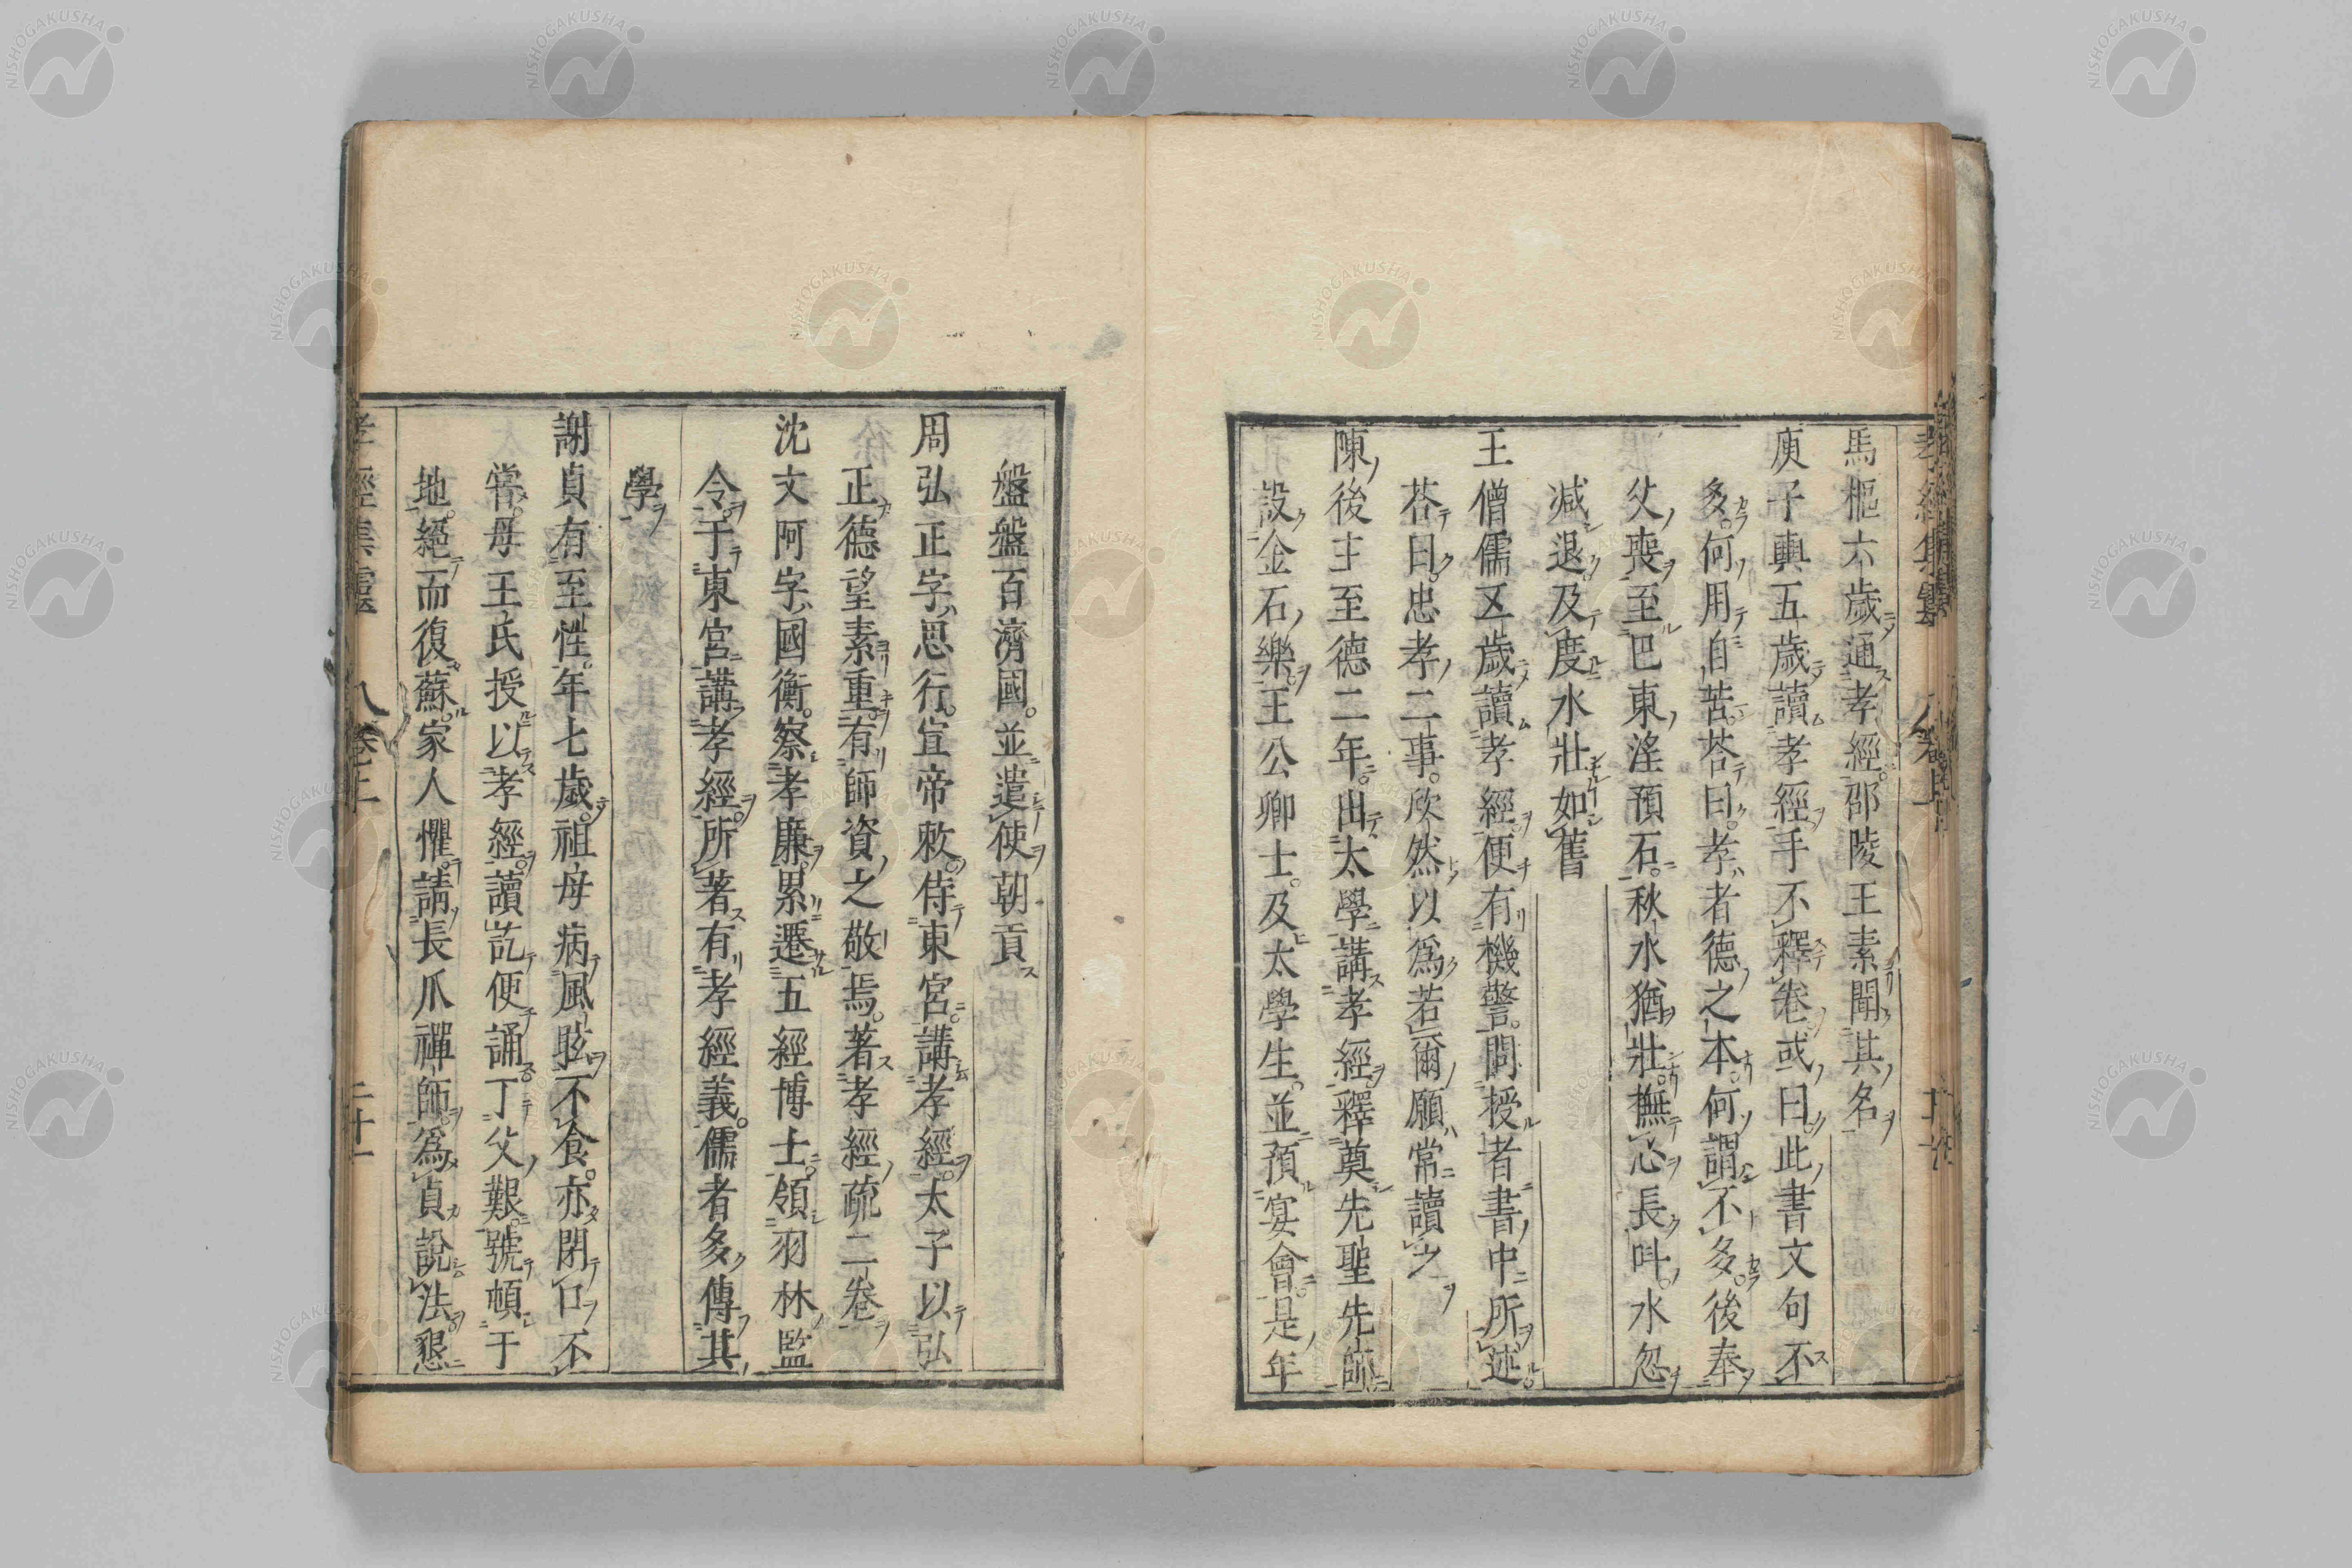 馬樞六歲通孝經邵陵王素聞其名
庾子輿五歲讀孝經手不釋卷或曰此書文句不
多何用自苦荅曰孝者德之本何謂不多後奉
父喪至巴東淫預石秋水猶壯撫心長叫水忽
減退及度水壯如舊
王僧儒五歲讀孝經便有機警問授者書中所述
荅曰忠孝二事欣然以爲若爾願常讀之
陳後主至德二年出太學講孝經釋奠先聖先師
設金石樂王公卿士及太學生並預宴會是年
盤盤百濟國並遣使朝貢
周弘正字思行宣帝敕侍東宮講孝經太子以弘
正德望素重有師資之敬焉著孝經疏二卷
沈文阿字國衡察孝廉累遷五經博士領羽林監
令于東宮講孝經所著有孝經義儒者多傳其
學
謝貞有至性年七歲祖母病風眩不食亦閉口不
甞母王氏授以孝經讀訖便誦丁父艱號頓于
地絕而復蘇家人懼請長爪禪師爲貞說法懇
NISHOGAKUSHA